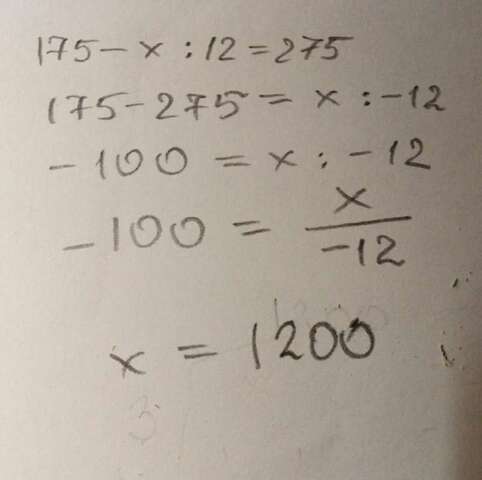 175 - x : 12 = 275
175 - 275 = x : -12
-100 = x : -12
-100 = x / -12
x = 1200